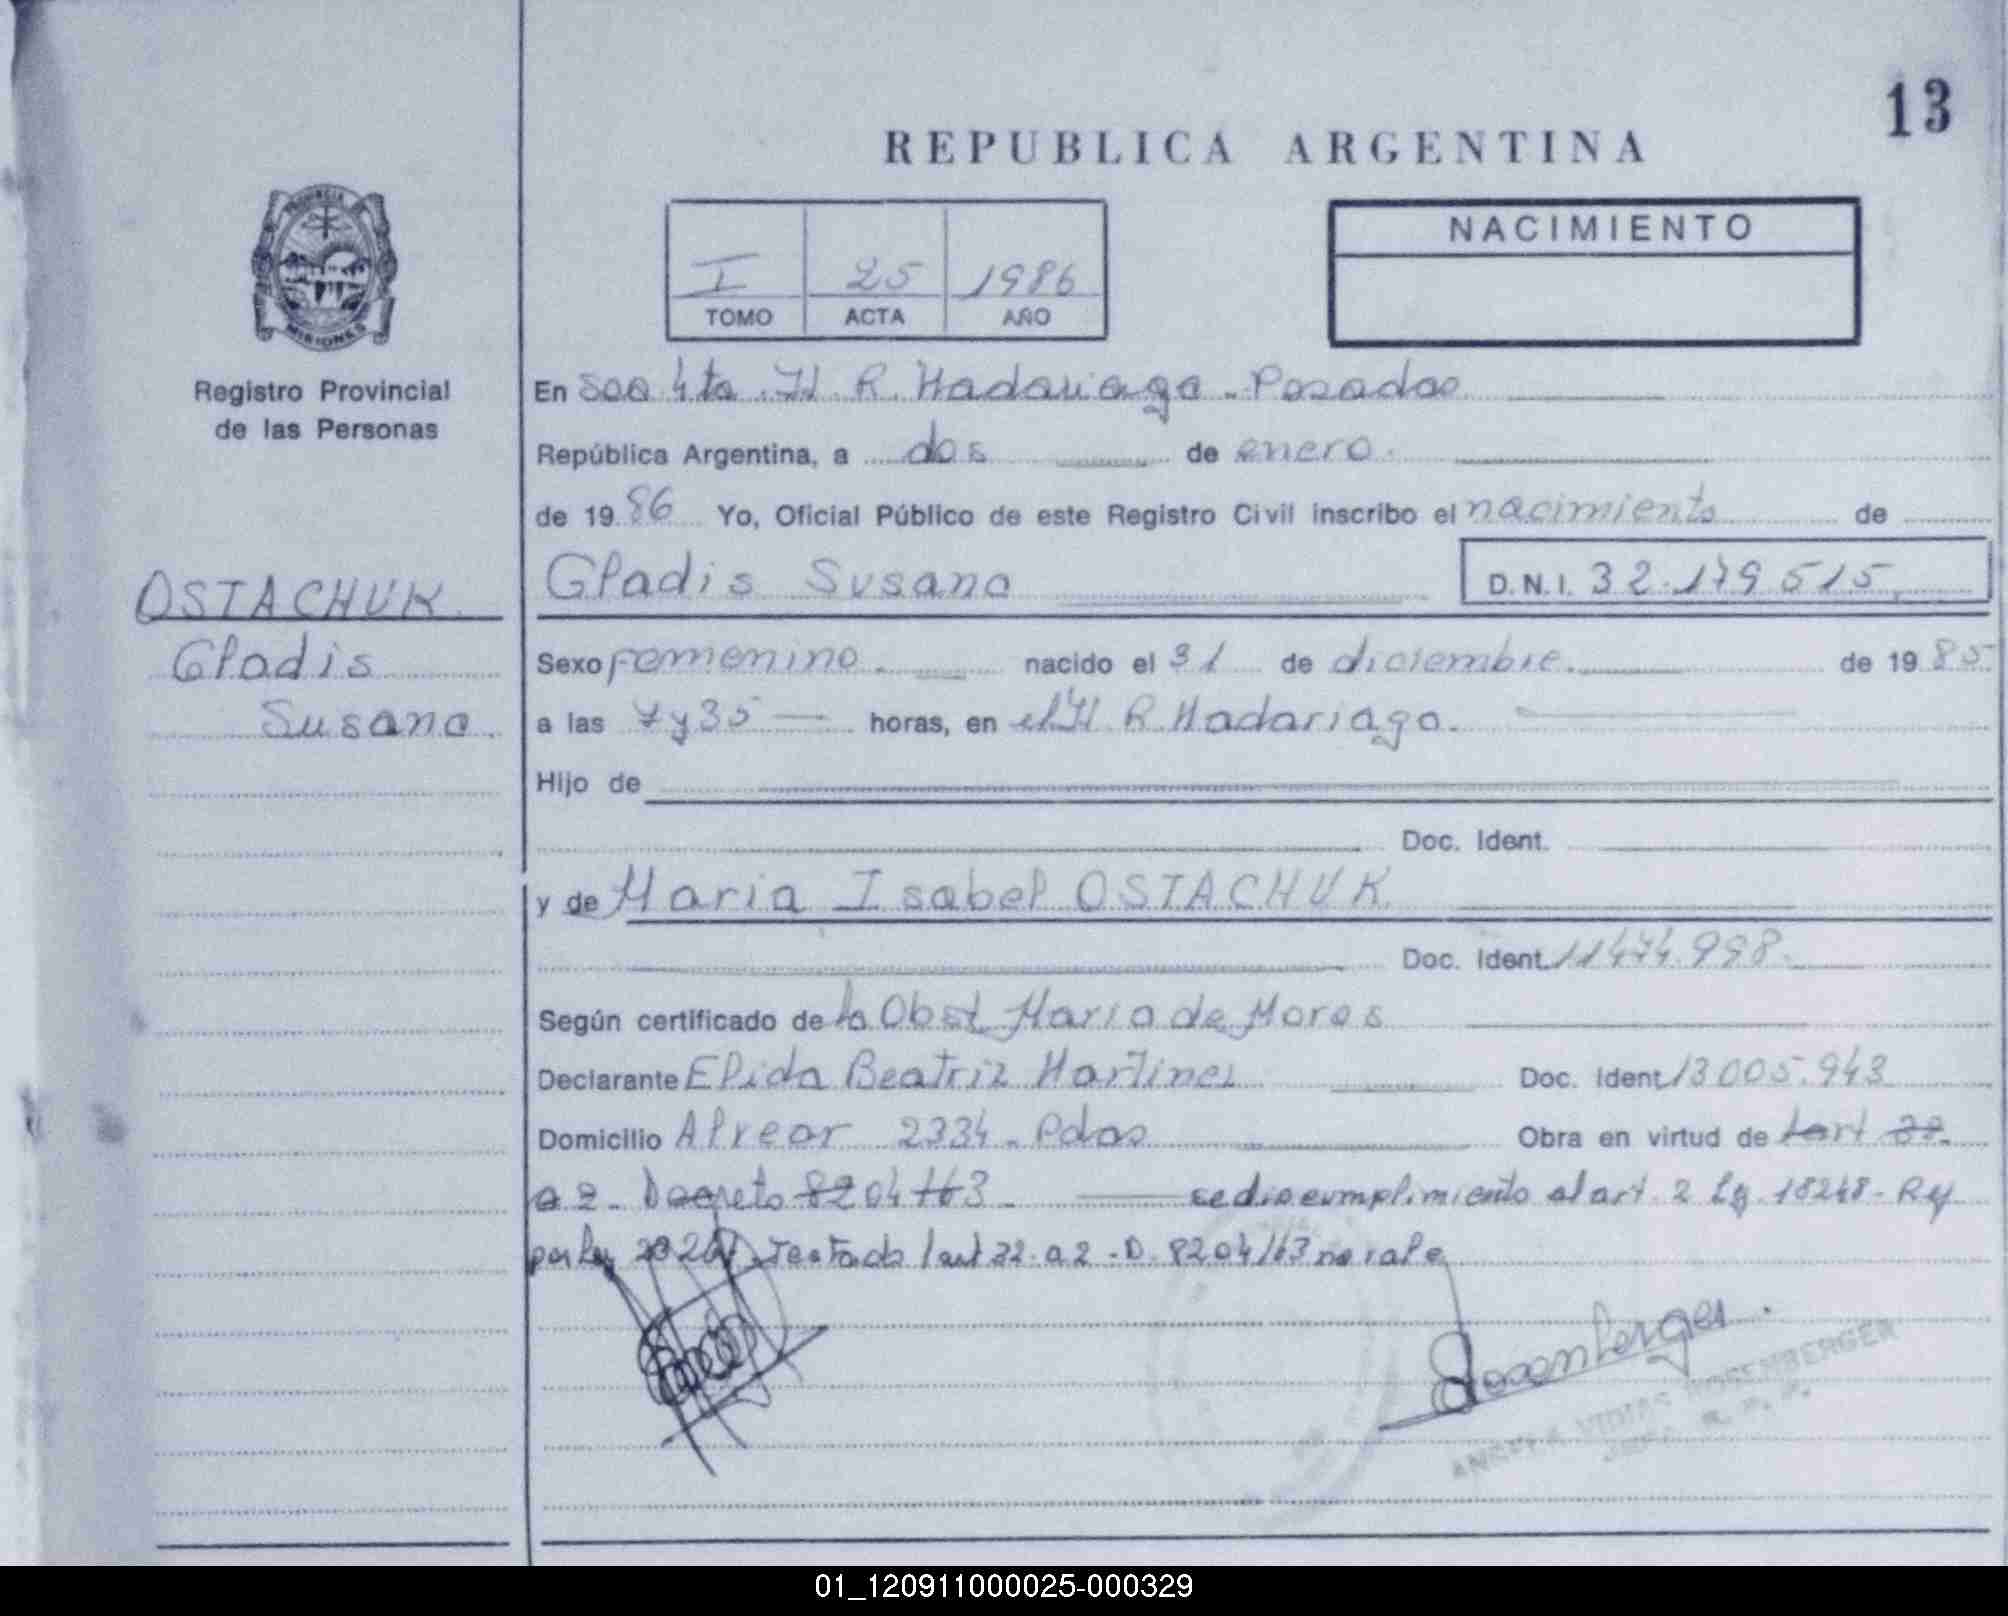 13
REPUBLICA ARGENTINA
PROVINCIA
MISIONES
Registro Provincial
de las Personas
I 25 1986
TOMO ACTA AÑO
NACIMIENTO
En Secc 4ta H R. Madariaga - Posadas
República Argentina, a dos de enero.
de 1986 Yo, Oficial Público de este Registro Civil inscribo el nacimiento de
OSTACHUK
Gladis
Susana.
Gladis Susana D.N.I. 32.179.515
Sexo femenino. nacido el 31 de diciembre. de 1985.
a las 7 y 35 — horas, en el H R. Madariaga.
Hijo de
Doc. Ident.
y de Maria Isabel OSTACHUK.
Doc. Ident. 11474.998.
Según certificado de la Obst Maria de Moras
Declarante Elida Beatriz Martinez Doc. Ident. 13005.943
Domicilio Alvear 2334 - Pdas Obra en virtud de l art 32.
a 2 - Decreto 8204/63 - se dio cumplimiento al art. 2 Ly 18248 - Ry
por Ley Testado l art 32. a 2 - D. 8204/63 no vale
Rosemberger
ANGELA ROSEMBERGER
R. P. P.
01_120911000025-000329